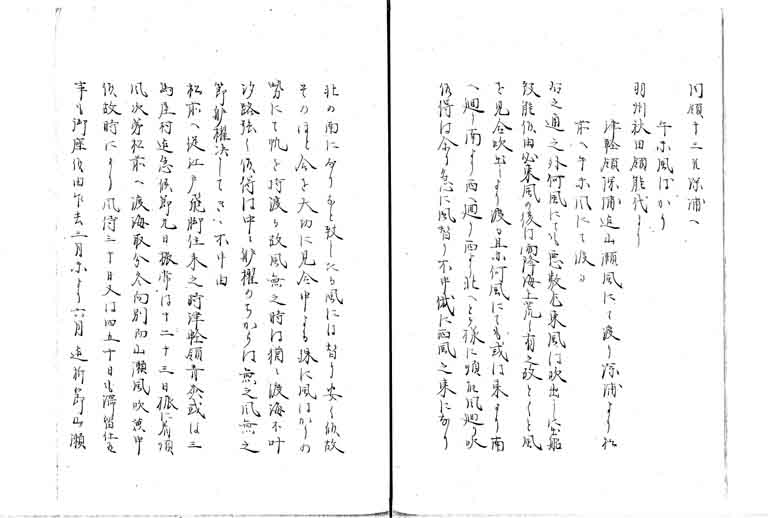 同領十三より深浦へ
午未風ばかり
羽州秋田領能代より
津軽領深浦迄山瀬風にて渡り深浦より松
前へ午未風にて渡り
右之通之外何風にても悪敷尤東風は吹出しに出船
致能候由必東風の後は雨降海上荒し有之故とくと風
を見合吹出すより渡り且亦何風にても或は東より南
へ廻り南より西へ廻り西より北へと段々に順能風廻り吹
候得は今り急に風替り不申候に西風之東になり
北の南になりなと致したる風には替り安く候故
そのほと合を大切に見合申よし殊に風はかりの
勢にて帆を持渡り故風無之時は猶々渡海不叶
汐路強く候得は中々艪櫂のちからにては無之風無之
節艪櫂決してきゝ不申由
松前へ従江戸飛脚往来之時津軽領青森或は三
馬屋村迄急候節九日振常は十二十三日振に着順
風次第松前へ渡海取分冬向別而山瀬風吹兼申
候故時により風待三十日又は四五十日も滞留仕候
事も御座候由乍去三月末より六月迄折節山瀬